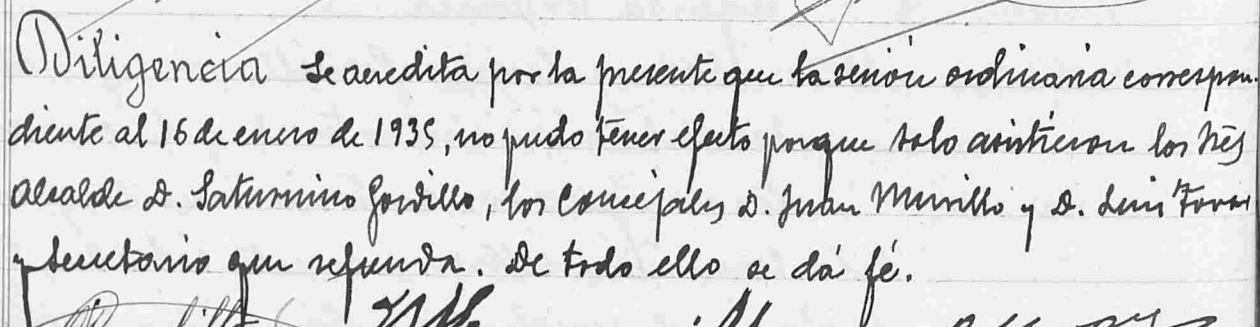 Diligencia Se acredita por la presente que la sesión ordinaria correspon-
diente al 16 de enero de 1935, no pudo tener efecto porque solo asistieron los tres
Alcalde D. Saturnino Gordillo, los Concejales D. Juan Murillo y D. Luis Tovar
y Secretario que refrenda. De todo ello se dá fé.